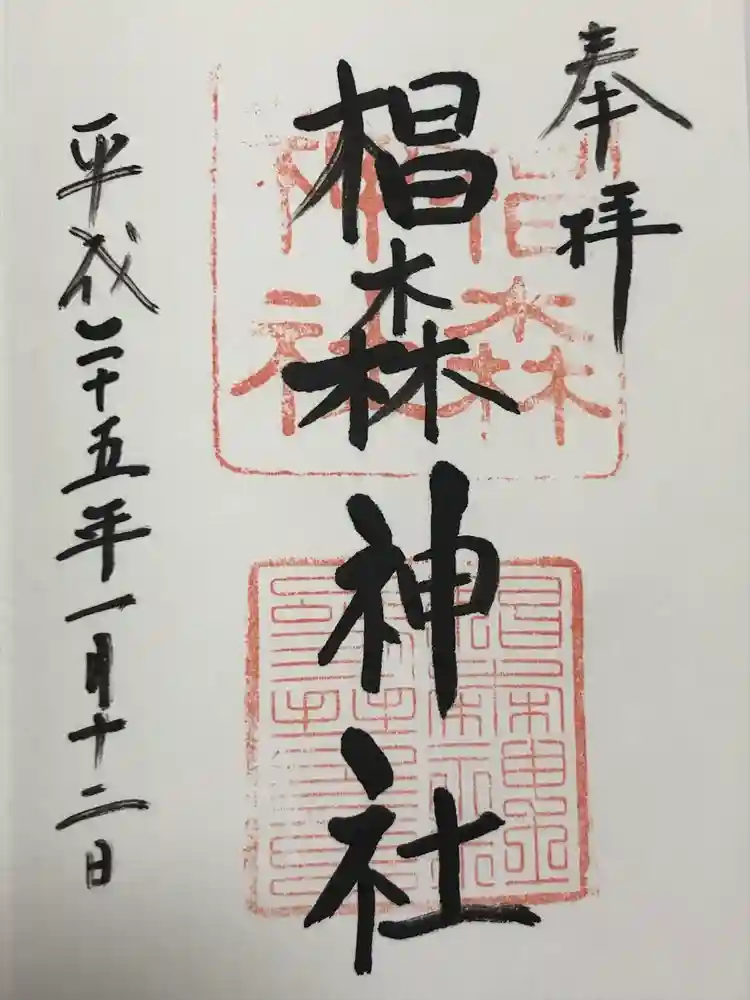 奉拝
椙森神社
平成二十五年一月十二日
椙森
神社